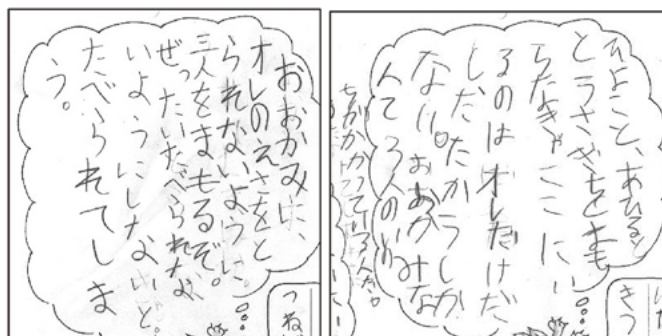 ひよこと、あひると
とうさぎちをまも
らなきゃここにい
るのはオレだけだ
しただたかうしか
ない。おおかみな
んて3人のいの
ちがかかっている人だ。
きつ
おおかみに、
オレのえさをと
られないように。
三人をまもるぞ。
ぜったいたべられな
いようにしないと。
たべられてしま
う。
つね